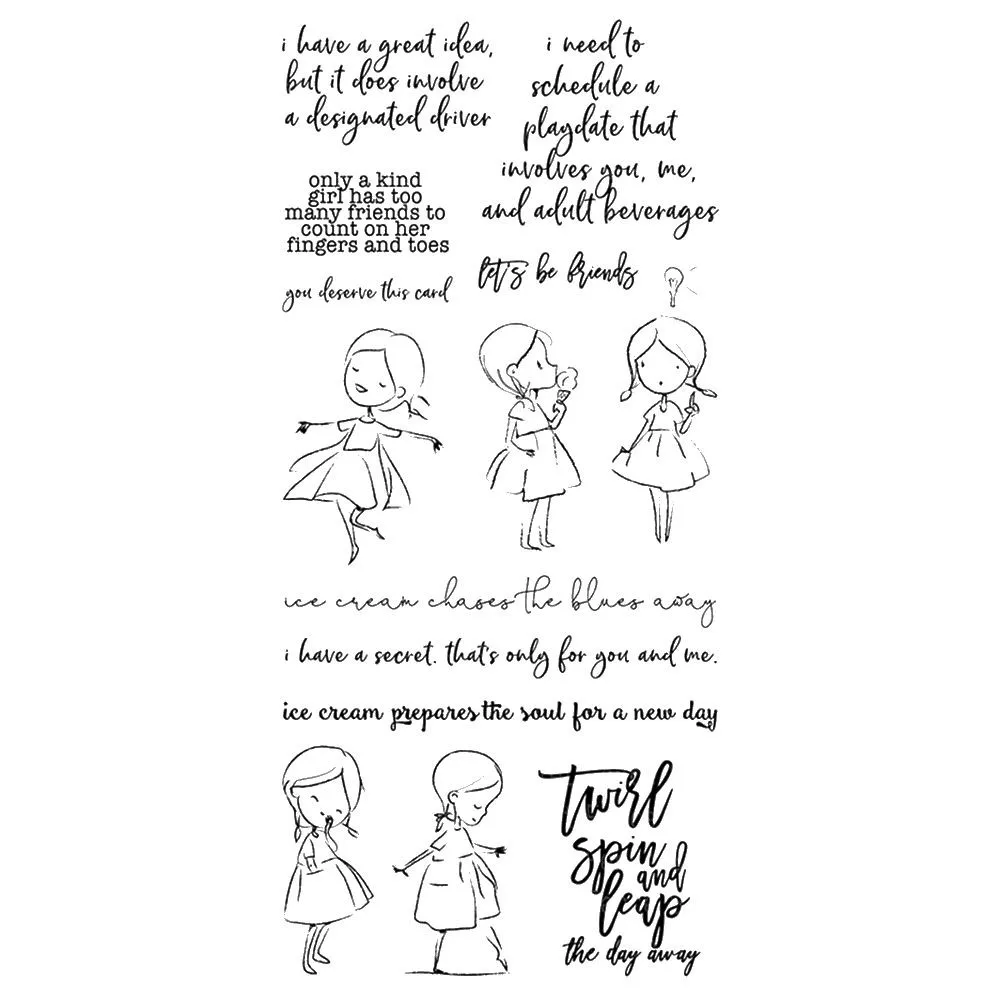 i have a great idea,
but it does involve
a designated driver
i need to
schedule a
playdate that
involves you, me,
and adult beverages
only a kind
girl has too
many friends to
count on her
fingers and toes
let's be friends
you deserve this card
ice cream chases the blues away
i have a secret. that's only for you and me.
ice cream prepares the soul for a new day
twirl
spin
and
leap
the day away